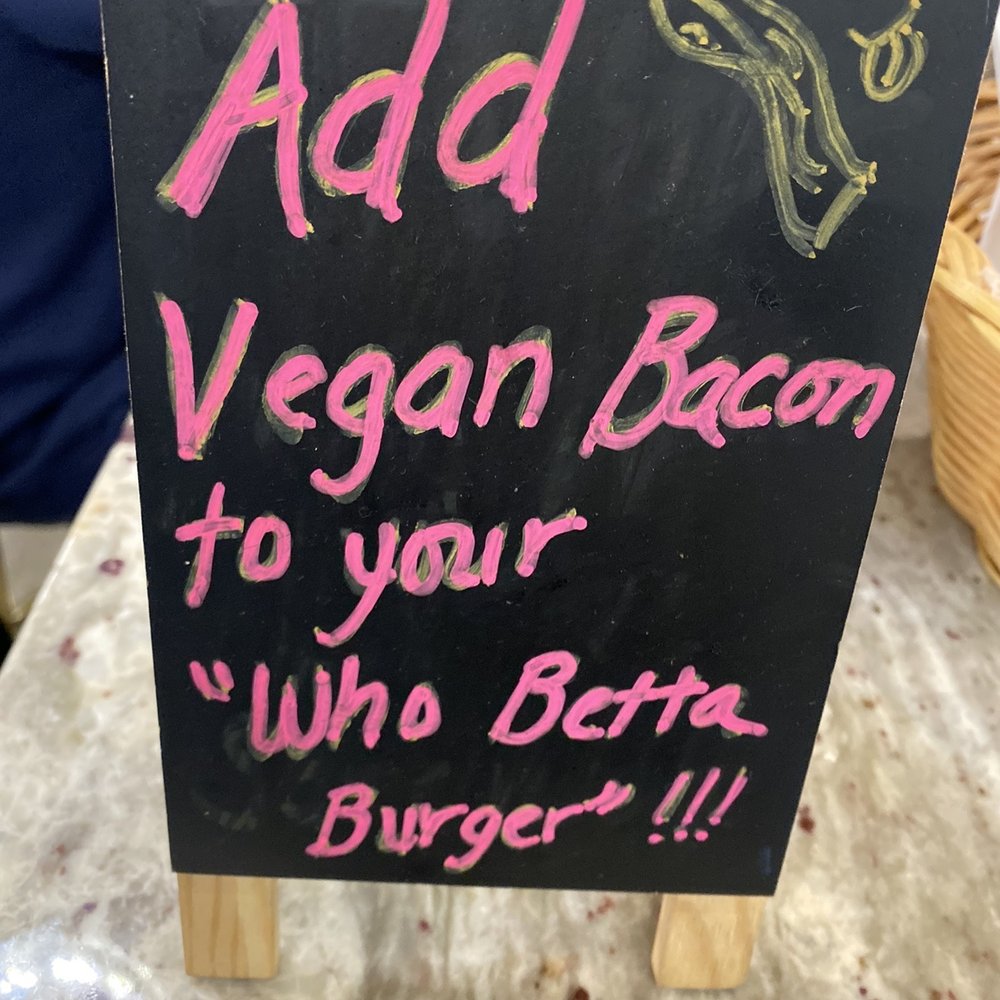 Add
Vegan Bacon
to your
"Who Betta
Burger" !!!